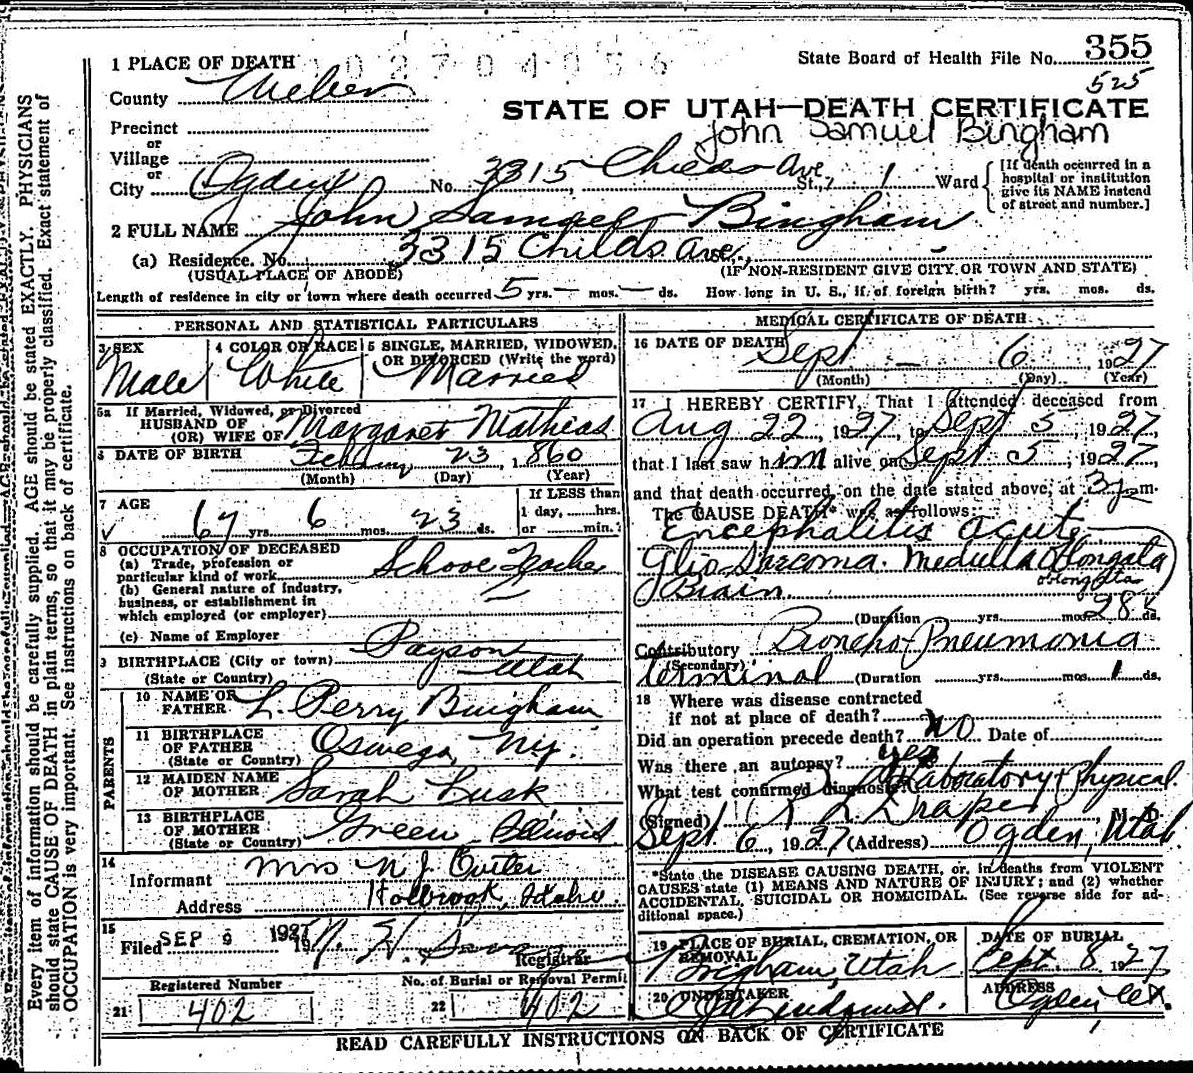 State Board of Health File No. 355
525
1 PLACE OF DEATH
County Weber
STATE OF UTAH—DEATH CERTIFICATE
John Samuel Bingham
Precinct
or
Village
or
City Ogden No. 3315 Childs Ave St., 1 Ward
[If death occurred in a hospital or institution give its NAME instead of street and number.]
2 FULL NAME John Samuel Bingham
(a) Residence. No. 3315 Childs Ave.,
(USUAL PLACE OF ABODE) (IF NON-RESIDENT GIVE CITY OR TOWN AND STATE)
Length of residence in city or town where death occurred 5 yrs. — mos. — ds. How long in U. S., if of foreign birth? yrs. mos. ds.
PERSONAL AND STATISTICAL PARTICULARS
3 SEX Male
4 COLOR OR RACE White
5 SINGLE, MARRIED, WIDOWED, OR DIVORCED (Write the word) Married
5a If Married, Widowed, or Divorced
HUSBAND OF
(OR) WIFE OF Margaret Mathias
6 DATE OF BIRTH 23, 1860
(Month) (Day) (Year)
7 AGE 67 yrs. 6 mos. 23 ds.
If LESS than
1 day, hrs.
or min.
8 OCCUPATION OF DECEASED
(a) Trade, profession or
particular kind of work School Teacher
(b) General nature of industry,
business, or establishment in
which employed (or employer)
(c) Name of Employer
9 BIRTHPLACE (City or town) Payson
(State or Country) Utah
PARENTS
10 NAME OF
FATHER L. Perry Bingham
11 BIRTHPLACE
OF FATHER Oswego, Ny.
(State or Country)
12 MAIDEN NAME
OF MOTHER Sarah Lusk
13 BIRTHPLACE
OF MOTHER Green Illinois
(State or Country)
14
Informant Mrs N. J. Cutler
Address Holbrook, Idaho.
15
Filed SEP 9 1927
Registrar
Registered Number
21 402
No. of Burial or Removal Permit
22 402
MEDICAL CERTIFICATE OF DEATH
16 DATE OF DEATH Sept — 6 1927
(Month) (Day) (Year)
17 I HEREBY CERTIFY, That I attended deceased from
Aug 22, 1927, to Sept 5, 1927,
that I last saw him alive on Sept 5, 1927,
and that death occurred, on the date stated above, at m.
The CAUSE DEATH* was as follows:
Encephalitis acute
Glio-Sarcoma. Medulla Oblongata
oblongata
Brain.
(Duration yrs. mos. 28 ds.
Contributory Broncho-Pneumonia
(Secondary)
terminal (Duration yrs. mos. 1 ds.
18 Where was disease contracted
if not at place of death?
Did an operation precede death? No Date of
Was there an autopsy? yes
What test confirmed diagnosis? Laboratory & Physical
(Signed) R L Draper, M. D.
Sept 6, 1927 (Address) Ogden, Utah
*State the DISEASE CAUSING DEATH, or, in deaths from VIOLENT
CAUSES state (1) MEANS AND NATURE OF INJURY; and (2) whether
ACCIDENTAL, SUICIDAL OR HOMICIDAL. (See reverse side for ad-
ditional space.)
19 PLACE OF BURIAL, CREMATION, OR
REMOVAL
Brigham, Utah
DATE OF BURIAL
Sept. 8 1927
20 UNDERTAKER
Lindquist.
ADDRESS
Ogden Ut.
READ CAREFULLY INSTRUCTIONS ON BACK OF CERTIFICATE
Every item of information should be carefully supplied. AGE should be stated EXACTLY. PHYSICIANS
should state CAUSE OF DEATH in plain terms, so that it may be properly classified. Exact statement of
OCCUPATION is very important. See instructions on back of certificate.